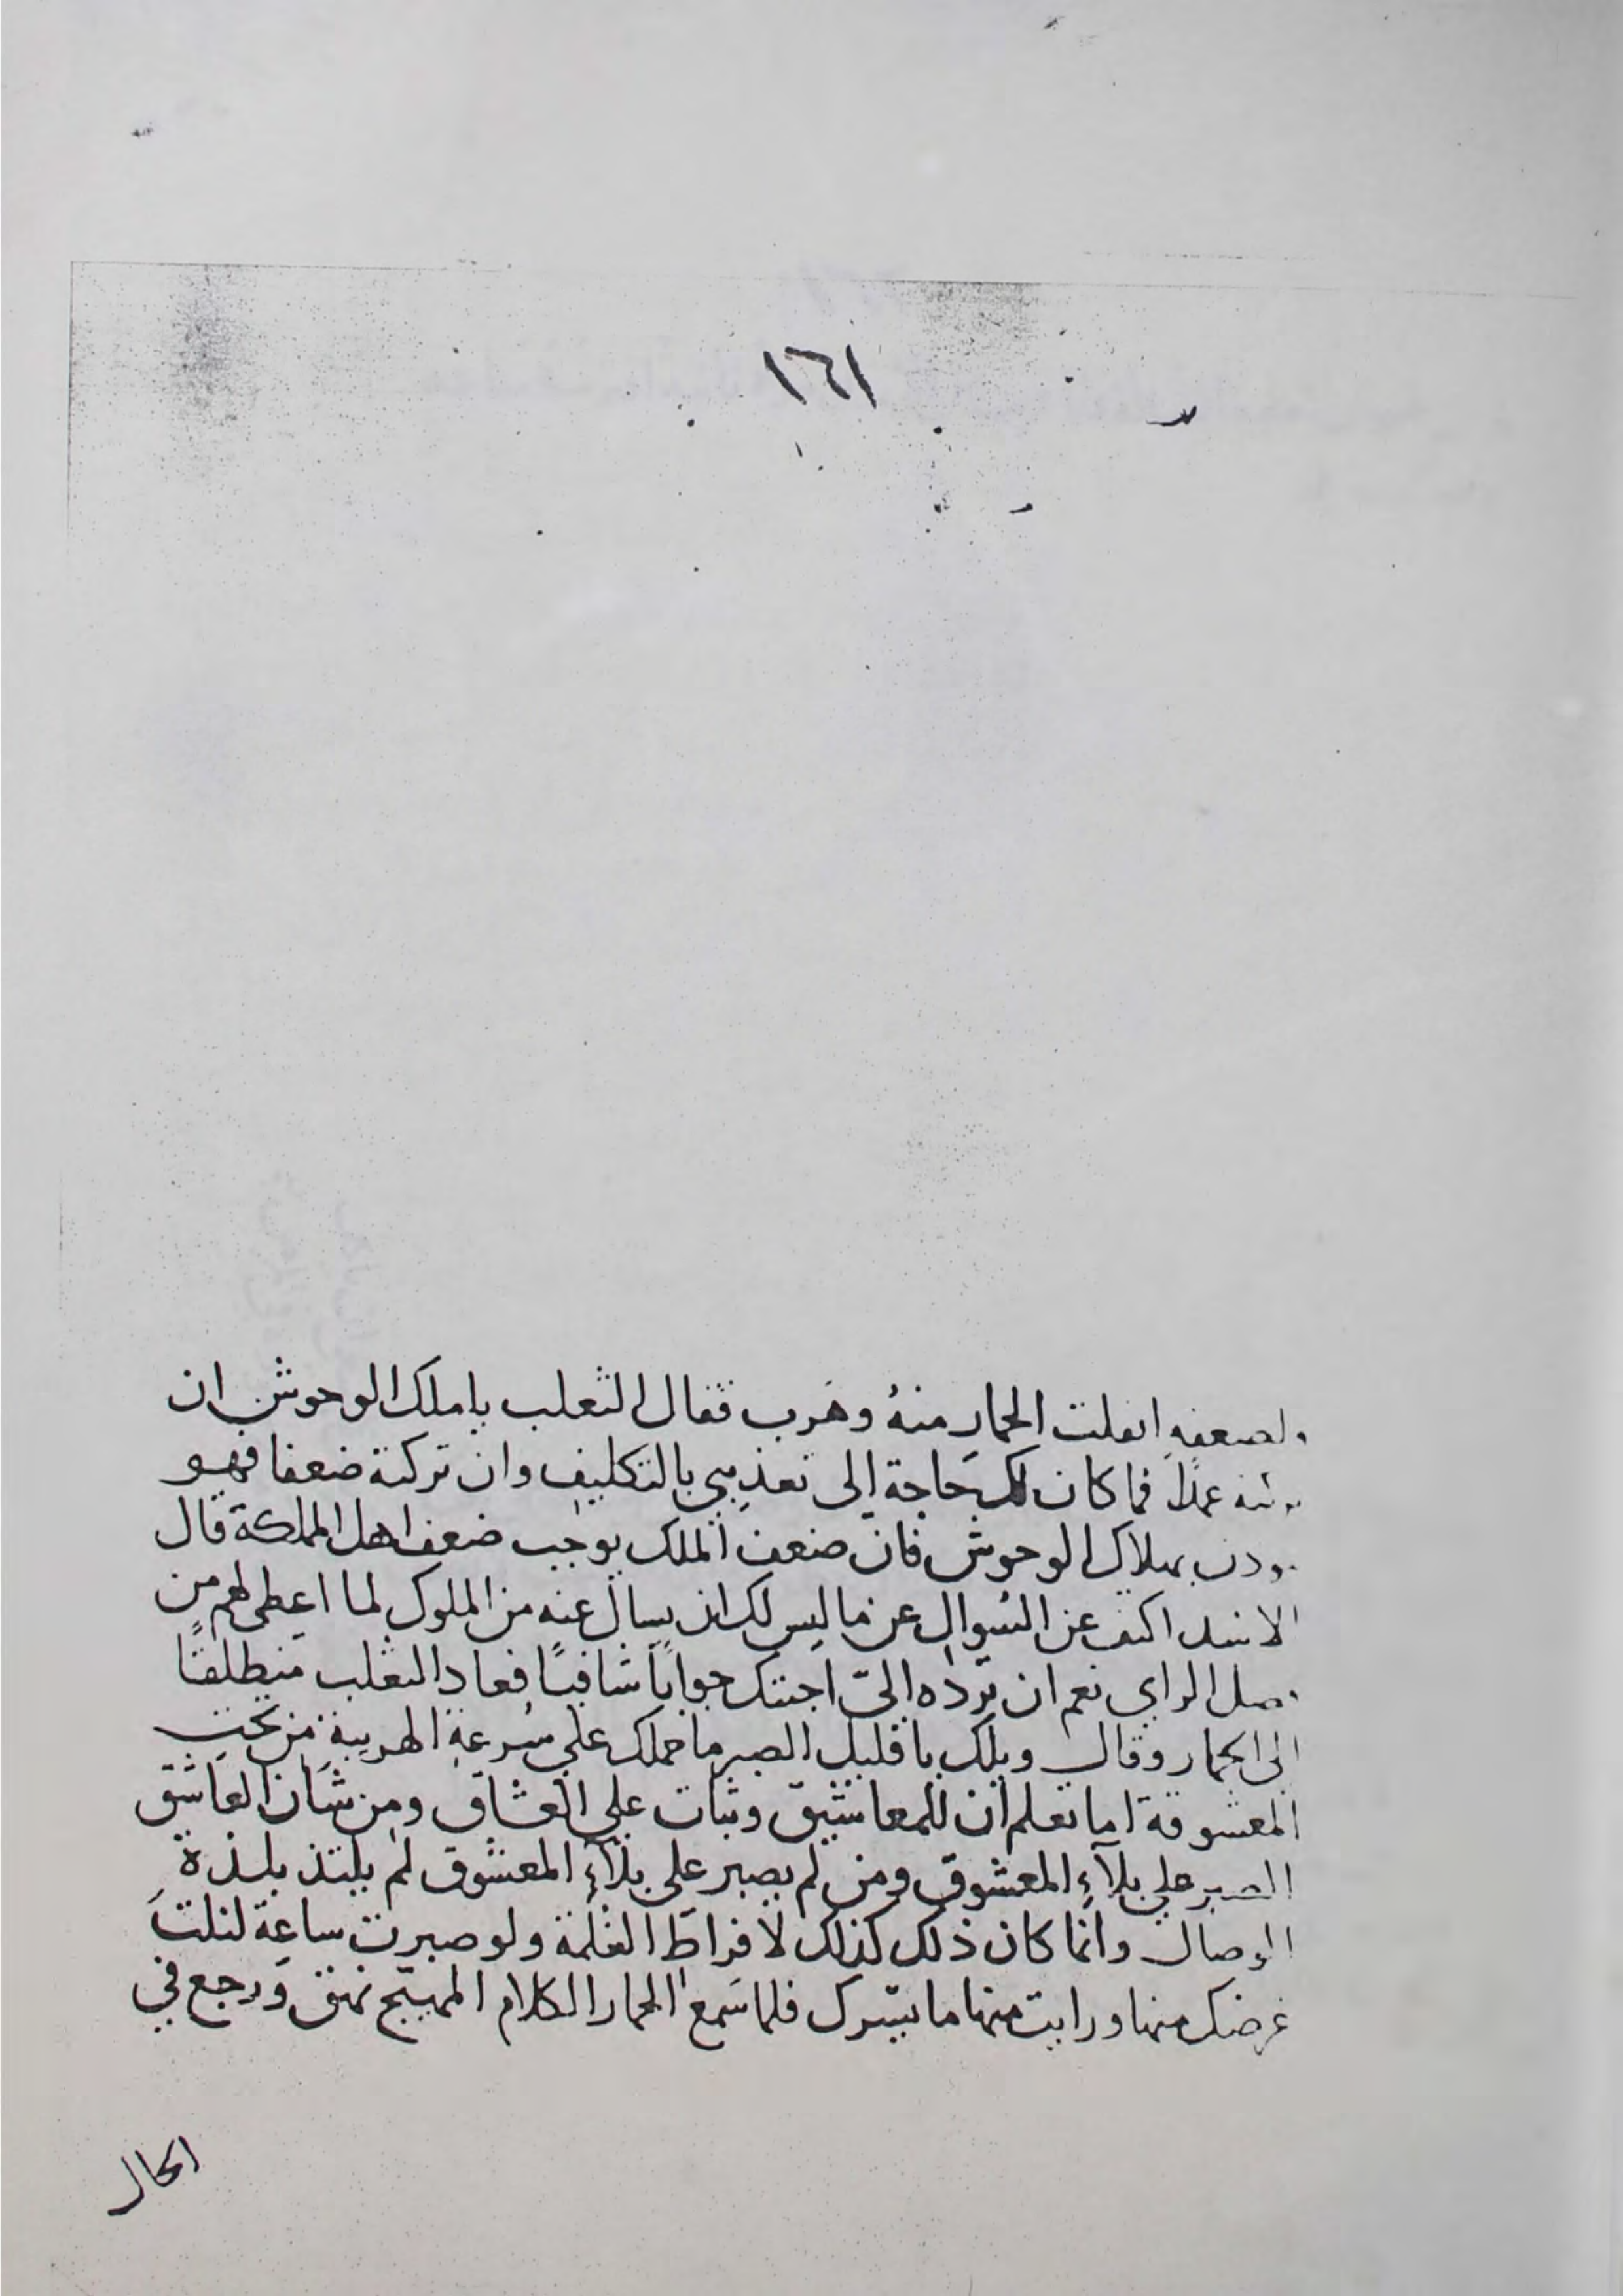 ١٦١
ولضعفه انفلت الحمار منهُ وهَرب فقال الثعلب يا ملك الوحوش ان
عمداً فما كان لك حَاجة الى تعذيبي بالتكليف وان تركته ضعفا فهو
بهلاك الوحوش فان ضعف الملك يوجب ضعف اهل المملكة قال
الاسد اكفف عن السُوال عن ما ليس لك ان يسال عنه من الملوك لما اعطى لهم من
الراي نعم ان تردّه اليّ اجبتك جوابًا شافيًا فعاد الثعلب منطلقًا
الى الحمار وقال ويلك يا قليل الصبر ما حملك على سُرعة الهريبة من تحت
المعشوقة اما تعلم ان للمعاشيق وثبات على العشاق ومن شَان العَاشق
الصبر على بلآءِ المعشوق ومن لم يصبر على بلآءِ المعشوق لم يلتذ بلذة
الوصال وانما كان ذلك كذلك لافراط الغلمة ولو صبرت ساعة لنلتَ
غرضك منها ورايت منها ما يسرك فلما سَمع الحمار الكلام المهيّج نهق وَرجع في
الحال